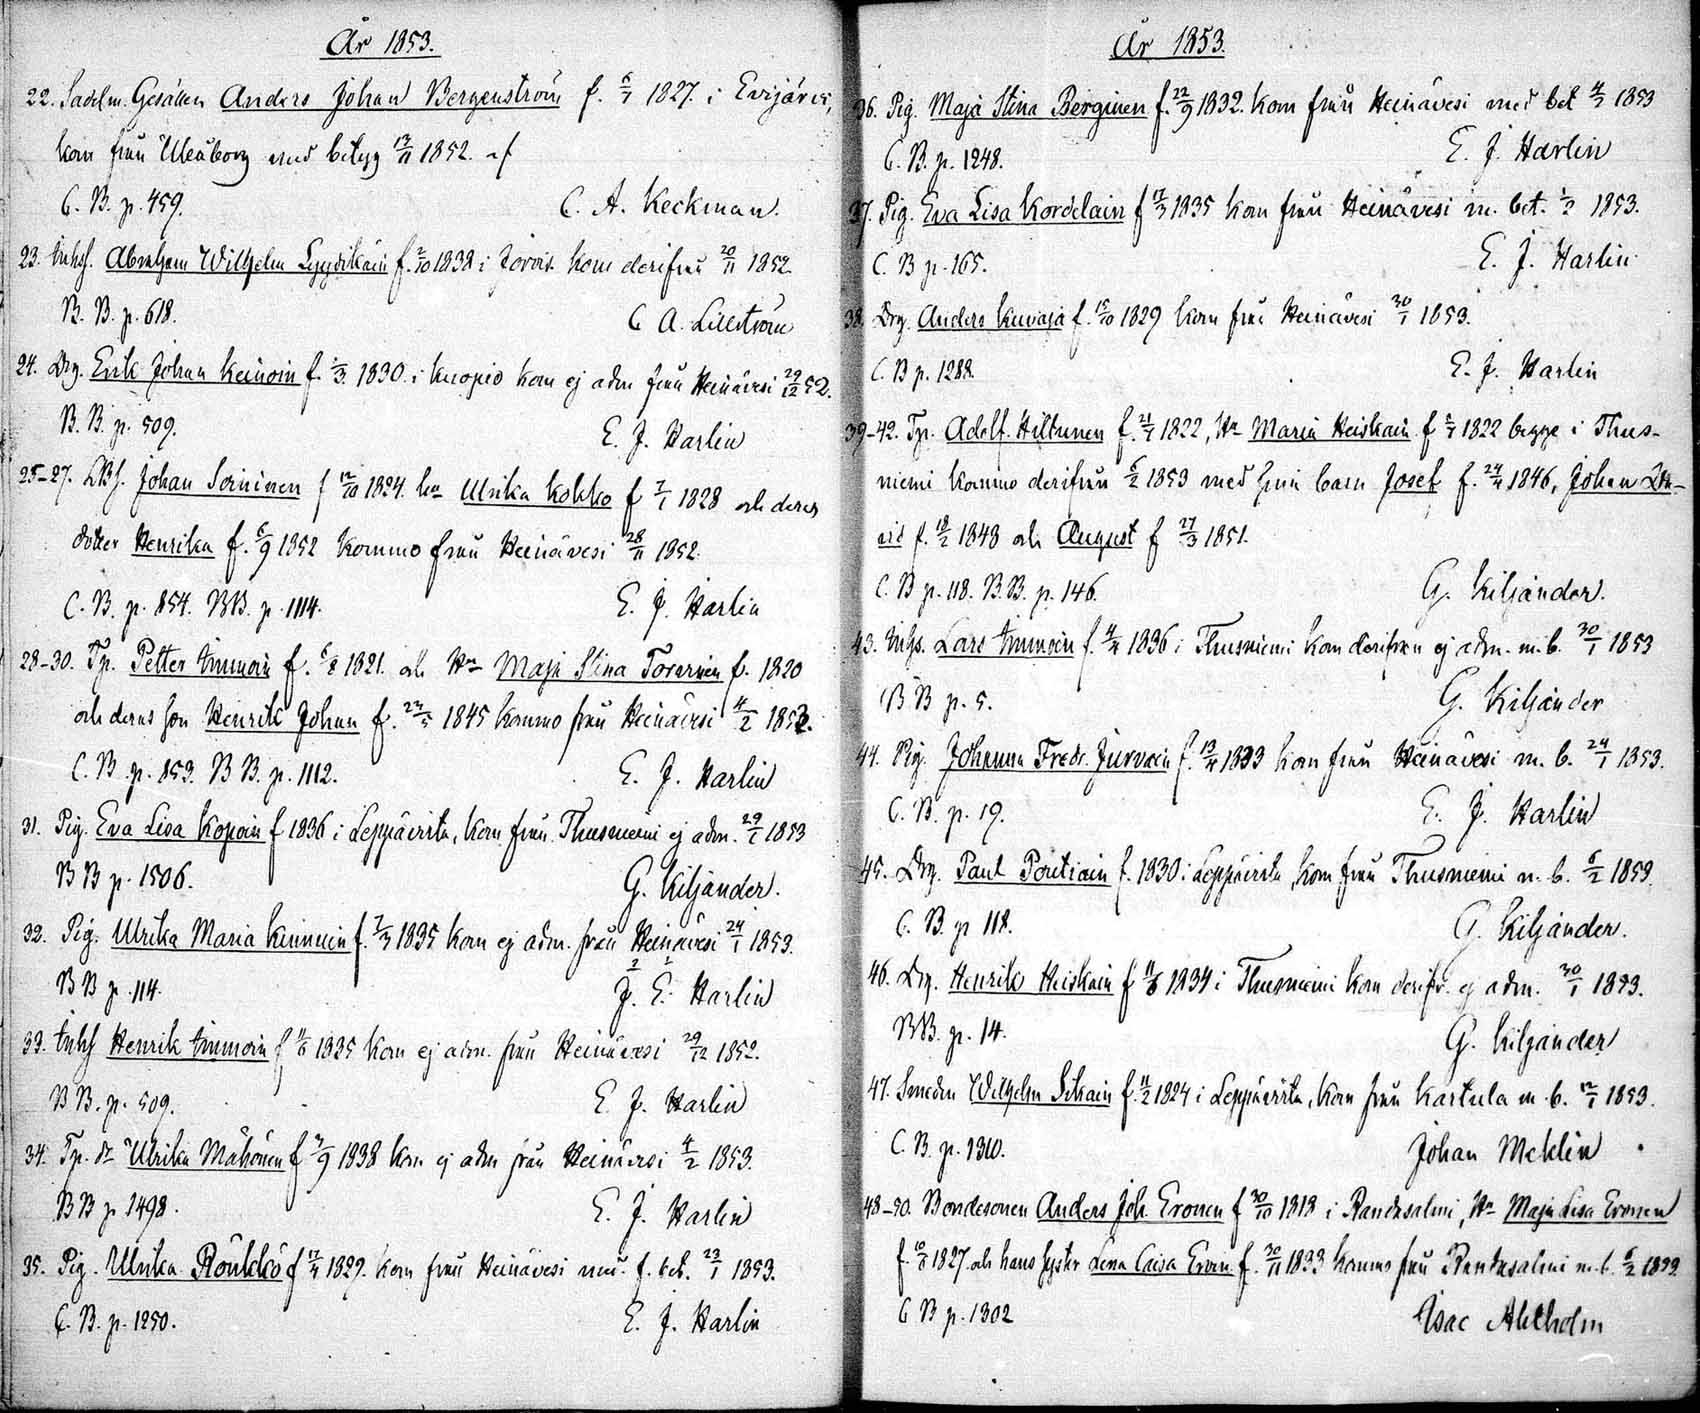 År 1853.
22. Sadelm. Gesällen Anders Johan Bergenström f. 5/7 1827. i Evijärvi,
kom från Uleåborg med betyg 13/11 1852.
C. B. p. 459. C. A. Keckman.
23. Inhsf. Abraham Wilhelm Lyydikäin f. 2/10 1838 i Jorois kom derifrån 20/11 1852.
B. B. p. 618. C A. Lilliström
24. Drg. Erik Johan Keinoin f. 1/3 1830. i Kuopio kom ej adm från Heinävesi 29/12 52.
B. B. p. 509. E. J. Harlin
25–27. Johan Sorninen f 12/10 1824. hu Ulrika Kokko f 7/1 1828 och deras
dotter Henrika f. 6/9 1852 kommo från Heinävesi 28/11 1852.
C. B. p. 854. BB. p. 1114. E. J. Harlin
28–30. Tp. Petter Immoin f. 6/8 1821. och Hu Maja Stina Tovarinen f. 1820
och deras son Henrik Johan f. 23/5 1845 kommo från Heinävesi 4/2 1853.
C. B. p. 853. B B. p. 1112. E. J. Harlin
31. Pig. Eva Lisa Kopoin f 1836 i Leppävirta, kom från Thusniemi ej adm. 29/1 1853
B B p. 1506. G. Kiljander.
32. Pig. Ulrika Maria Kinnuin f. 7/3 1835 kom ej adm. från Heinävesi 24/1 1853.
B B p. 114. J. E. Harlin
33. Inhsf Henrik Immoin f 11/6 1835 kom ej adm. från Heinävesi 29/12 1852.
B B. p. 509. E. J. Harlin
34. Tp. dr Ulrika Mähönen f 3/9 1838 kom ej adm från Heinävesi 4/2 1853.
B B p 1498. E. J. Harlin
35. Pig. Ulrika Röukkö f 12/4 1829. kom från Heinävesi f. bet. 23/1 1853.
C. B. p. 1250. E. J. Harlin
År 1853.
36. Pig. Maja Stina Berginen f. 22/9 1832. kom från Heinävesi med bet 4/2 1853
C. B. p. 1248. E. J. Harlin
37. Pig. Eva Lisa Kordelain f 17/3 1835 kom från Heinävesi m. bet. 1/2 1853.
C. B p. 165. E. J. Harlin
38. Drg. Anders Kuvaja f. 15/10 1829 kom från Heinävesi 30/1 1853.
C. B p. 1288. E. J. Harlin
39–42. Tp. Adolf Hiltunen f. 21/7 1822, Hu Maria Heiskain f 5/7 1822 begge i Thus-
niemi kommo derifrån 6/2 1853 med sina barn Josef f. 24/4 1846, Johan Da-
vid f. 18/2 1848 och August f 27/3 1851.
C. B p. 118. B. B. p. 146. G. Kiljander.
43. Inhs. Lars Immoin f. 4/4 1836 i Thusniemi kom derifrån ej adm. m. b. 30/1 1853
B B p. 5. G. Kiljander
44. Pig. Johanna Fredr. Jurvain f. 13/4 1833 kom från Heinävesi m. b. 24/1 1853.
C. B. p. 19. E. J. Harlin
45. Drg. Paul Poutiain f. 1830 i Leppävirta, kom från Thusniemi m. b. 6/2 1853.
C. B. p 118. G. Kiljander.
46. Drg. Henrik Heiskain f 11/6 1834 i Thusniemi kom derifr. ej adm. 30/1 1853.
BB. p. 14. G. Kiljander
47. Smeden Wilhelm Sikain f. 11/2 1824 i Leppävirta, kom från Kartula m. b. 12/1 1853.
C. B. p. 1310. Johan Meklin
48–50. Bondesonen Anders Joh. Eronen f 30/10 1818 i Randasalmi, Hu Maja Lisa Eronen
f. 10/8 1827. och hans syster Lena Caisa Eroin. f. 30/11 1833 kommo från Randasalmi m. b. 6/2 1853.
C B p. 1302 Isac Ahlholm